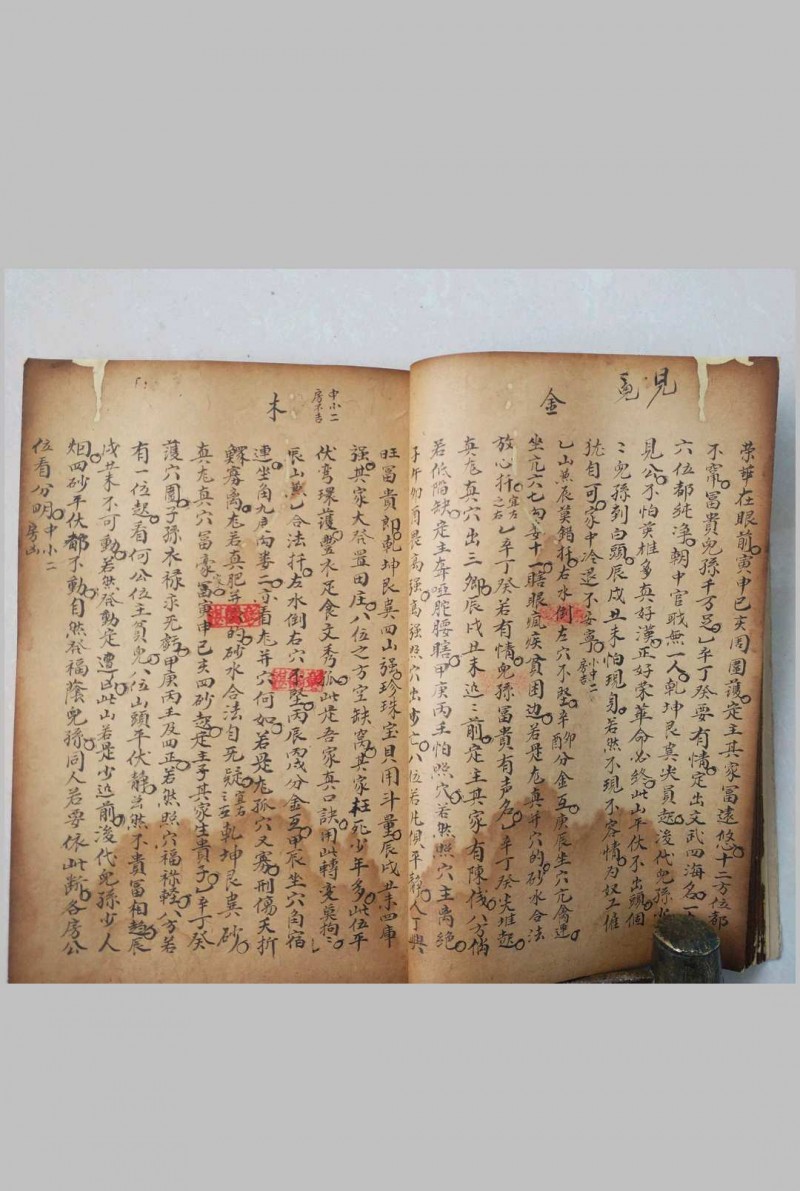 見
金
榮華在眼前寅申巳亥周圍護定主其家冨遠悠十二方位都
不常冨貴兒孫千万足乙辛丁癸要有情定出文武四海名
六位都純淨朝中官戝無一人乾坤艮巽尖員起後代兒孫少
見公不怕英雄多真好漢正好榮華命必終此山平伏不出頭個
〻兒孫到白頭辰戌丑未怕現身若然不現不容情為奴工僱
犹自可家中冷退不安寧小中二房吉
乙山兼辰巽錯扦右水倒左穴不墜辛卯辛酉分金互庚辰坐穴亢禽連
坐亢六七勾妾十一瞎眼瘋疾貧困边若是龙真并穴的砂水合法
放心扦宜左之右乙辛丁癸若有情兒孫冨貴有声名乙辛丁癸尖堆起
真龙真穴出三鄉辰戌丑未迯〻前定主其家有陳伐八方俏
若低陷缺定主聾啞駝腰瞎甲庚丙壬怕照穴若然照穴主离绝
子午卯酉艮高强高强照穴出少亡八位若凡俱平靜人丁興
旺冨貴郎乾坤艮巽四山强珍珠宝貝用斗量辰戌丑未四庫
强其家大發置田庄八位之方空缺窩其家枉死少年多此位平
伏弯環護豐衣足食文秀孤此是吾家真口訣用此轉変莫拘〻
木
中小二房不吉
辰山兼乙合法扦左水倒右穴不墜丙辰丙戌分金互甲辰坐穴角宿
連坐角九度丙番二小看龙并穴何如若是龙孤穴又寡刑傷夭折
鰥寡离龙若真肥并的砂水合法自死疑宜右乾坤艮巽砂
真龙真穴冨豪冨寅申巳亥四砂起定主子其家生貴子乙辛丁癸
護穴圍子孫衣祿求死虧甲庚丙壬及四正若然照穴福祿輕八方若
有一位起看何公位主貧兒八位山頭平伏静若然不貴冨相起辰
戌丑未不可動若然發動定遭凶此山若是少迯前後代兒孫少人
烟四砂平伏都不動自然發福蔭兒孫同人若要依此断各房公
位看分明中小二房凶